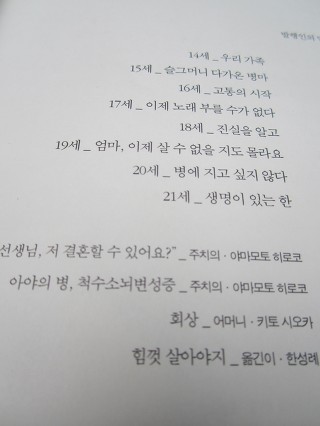 14세 _ 우리 가족
15세 _ 슬그머니 다가온 병마
16세 _ 고통의 시작
17세 _ 이제 노래 부를 수가 없다
18세 _ 진실을 알고
19세 _ 엄마, 이제 살 수 없을 지도 몰라요
20세 _ 병에 지고 싶지 않다
21세 _ 생명이 있는 한
선생님, 저 결혼할 수 있어요?" _ 주치의 · 야마모토 히로코
아야의 병, 척수소뇌변성증 _ 주치의 · 야마모토 히로코
회상 _ 어머니 · 키토 시오카
힘껏 살아야지 _ 옮긴이 · 한성례